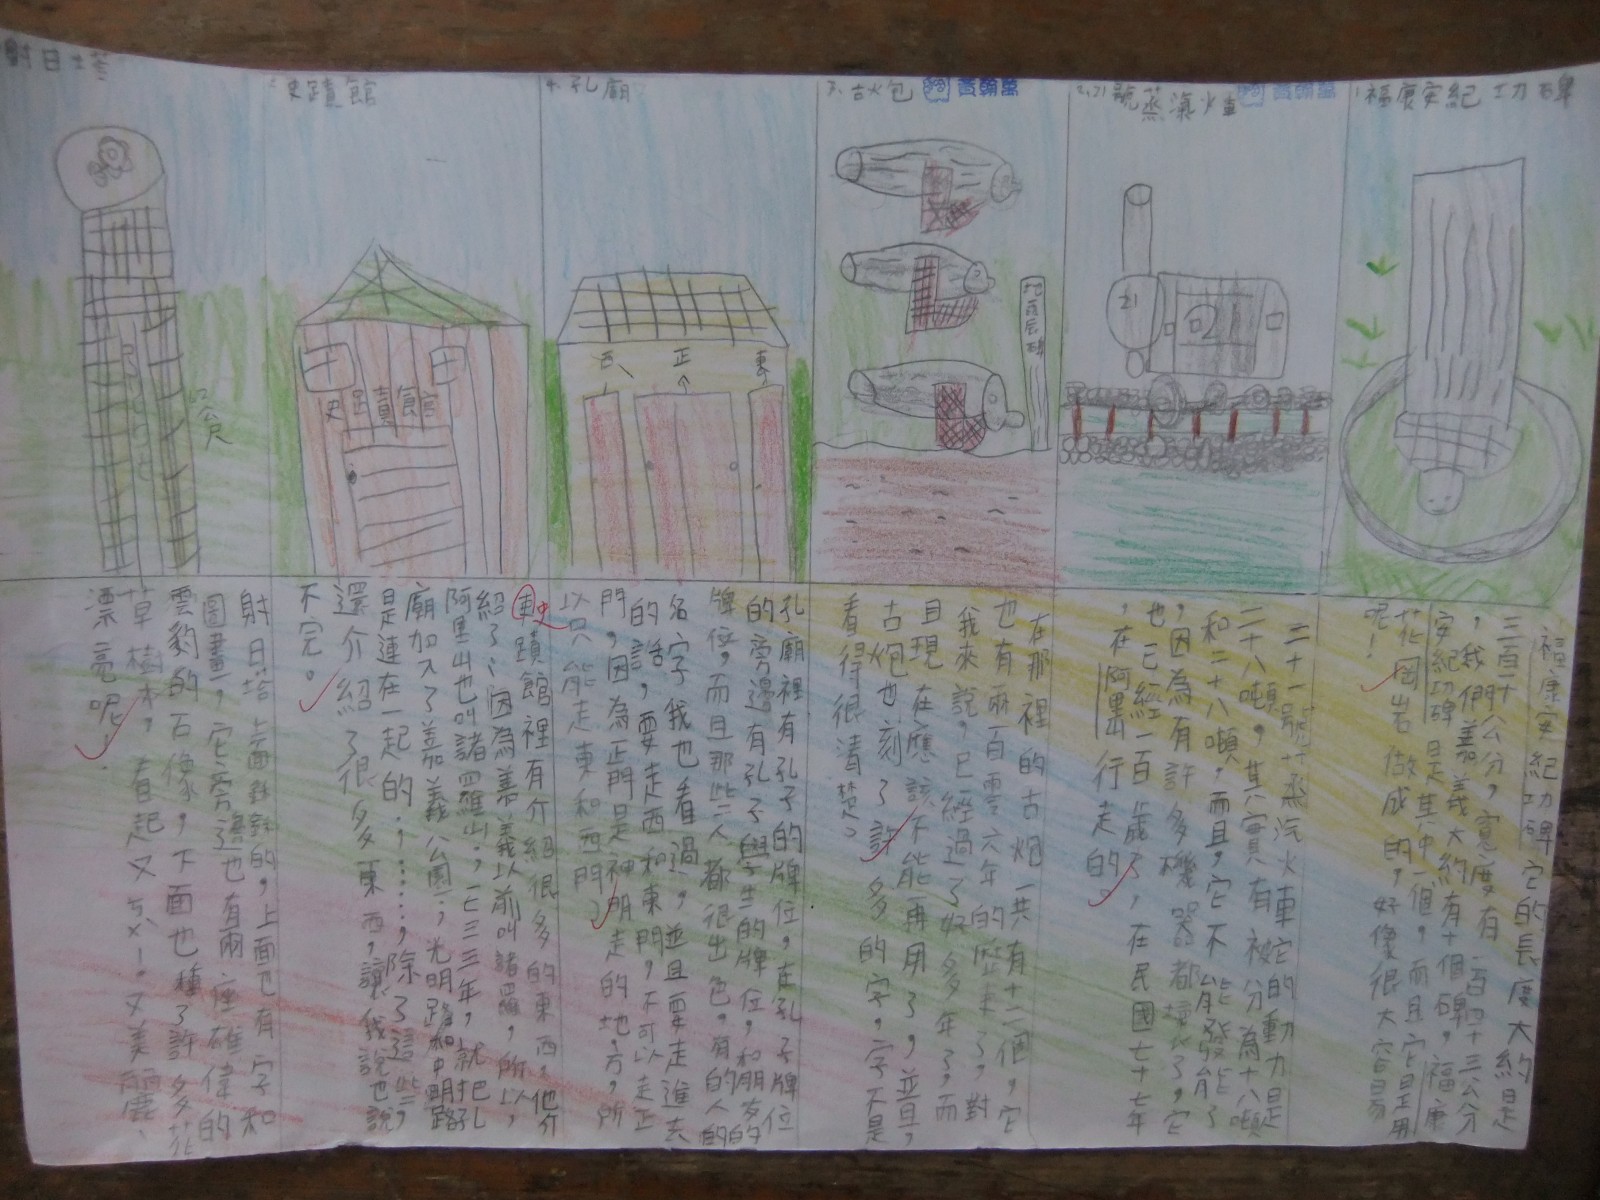 1.福康安紀功碑
福康安紀功碑它的長度大約是
三百一十公分,寬度有一百四十三公分
,我們嘉義大約有十個碑,福康
安紀功碑是其中一個,而且它是用
花岡岩做成的,好像很大容易
呢!
2.21號蒸氣火車
21
二十一號蒸汽火車它的動力是
二十八噸,其實有被分為十八噸
和二十八噸,而且,它不能發能了
,因為有許多機器都壞了,它
也已經一百歲了,在民國七十七年
,在阿里山行走的。
3、古火包
在那裡的古炮一共有十二個,它
也有兩百零六年的歷史了,對
我來說,已經過了好多年了,而
且現在應該不能再用了,並且,
古炮也刻了許多的字,字不是
看得很清楚。
4.孔廟
西
正
東
孔廟裡有孔子的牌位,在孔子牌位
的旁邊有孔子學生的牌位,和朋友的
牌位,而且那些人都很出色,有的人的
名字我也看過,並且要走進去
的話,要走西和東門,不可以走正
門,因為正門是神明走的地方,所
以只能走東和西門。
史蹟館
史蹟館
史
車蹟館裡有介紹很多的東西,他介
紹了:因為嘉義以前叫諸羅,所以,
阿里山也叫諸羅山。,一七三三年,就把孔子
廟加入了嘉義公園。,光明路和中明路
是連在一起的。,……,除了這些,
還介紹了很多東西,讓我說也說
不完。
射日塔
62公尺
射日塔上面斜斜的,上面也有字和
圖畫,它旁邊也有兩座雄偉的
雲豹的石像,下面也種了許多花
草樹木,看起又ㄎㄨ!又美麗、
漂亮呢!
黃翰萬
黃翰萬